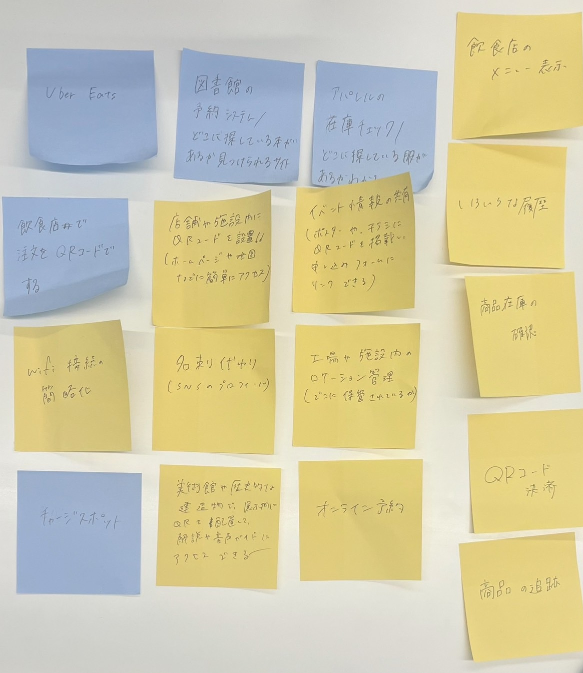 Uber Eats
図書館の
予約システム/
どこに探している本が
あるか見つけられるサイト
アパレルの
在庫チェック/
どこに探している服が
あるか
飲食店の
メニュー表示
飲食店などで
注文をQRコードで
する
店舗や施設内に
QRコードを設置し
(ホームページや地図
などに簡単にアクセス)
イベント情報の共有
(ポスターや、チラシに
QRコードを掲載し
申し込のフォームに
リンクできる)
いろいろな履歴
wifi接続の
簡略化
名刺代わり
(SNSのプロフィール)
工場や施設内の
ロケーション管理
(どこに保管されているか)
商品在庫の
確認
チャージスポット
美術館や歴史的な
建造物に、展示物に
QRを設置して、
解説や音声ガイドに
アクセスできる
オンライン予約
QRコード
決済
商品の追跡